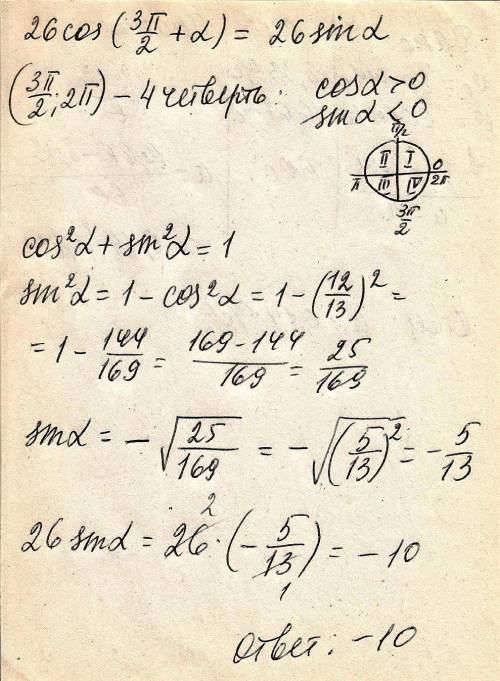 26 cos (3π/2 + α) = 26 sin α
(3π/2; 2π) – 4 четверть: cos α > 0
sin α < 0
π/2
II I
π 0
III IV 2π
3π/2
cos²α + sin²α = 1
sin²α = 1 – cos²α = 1 – (12/13)² =
= 1 – 144/169 = (169 – 144)/169 = 25/169
sin α = – √(25/169) = – √((5/13)²) = – 5/13
2
26 sin α = 26 · (– 5/13) = – 10
1
Ответ: –10